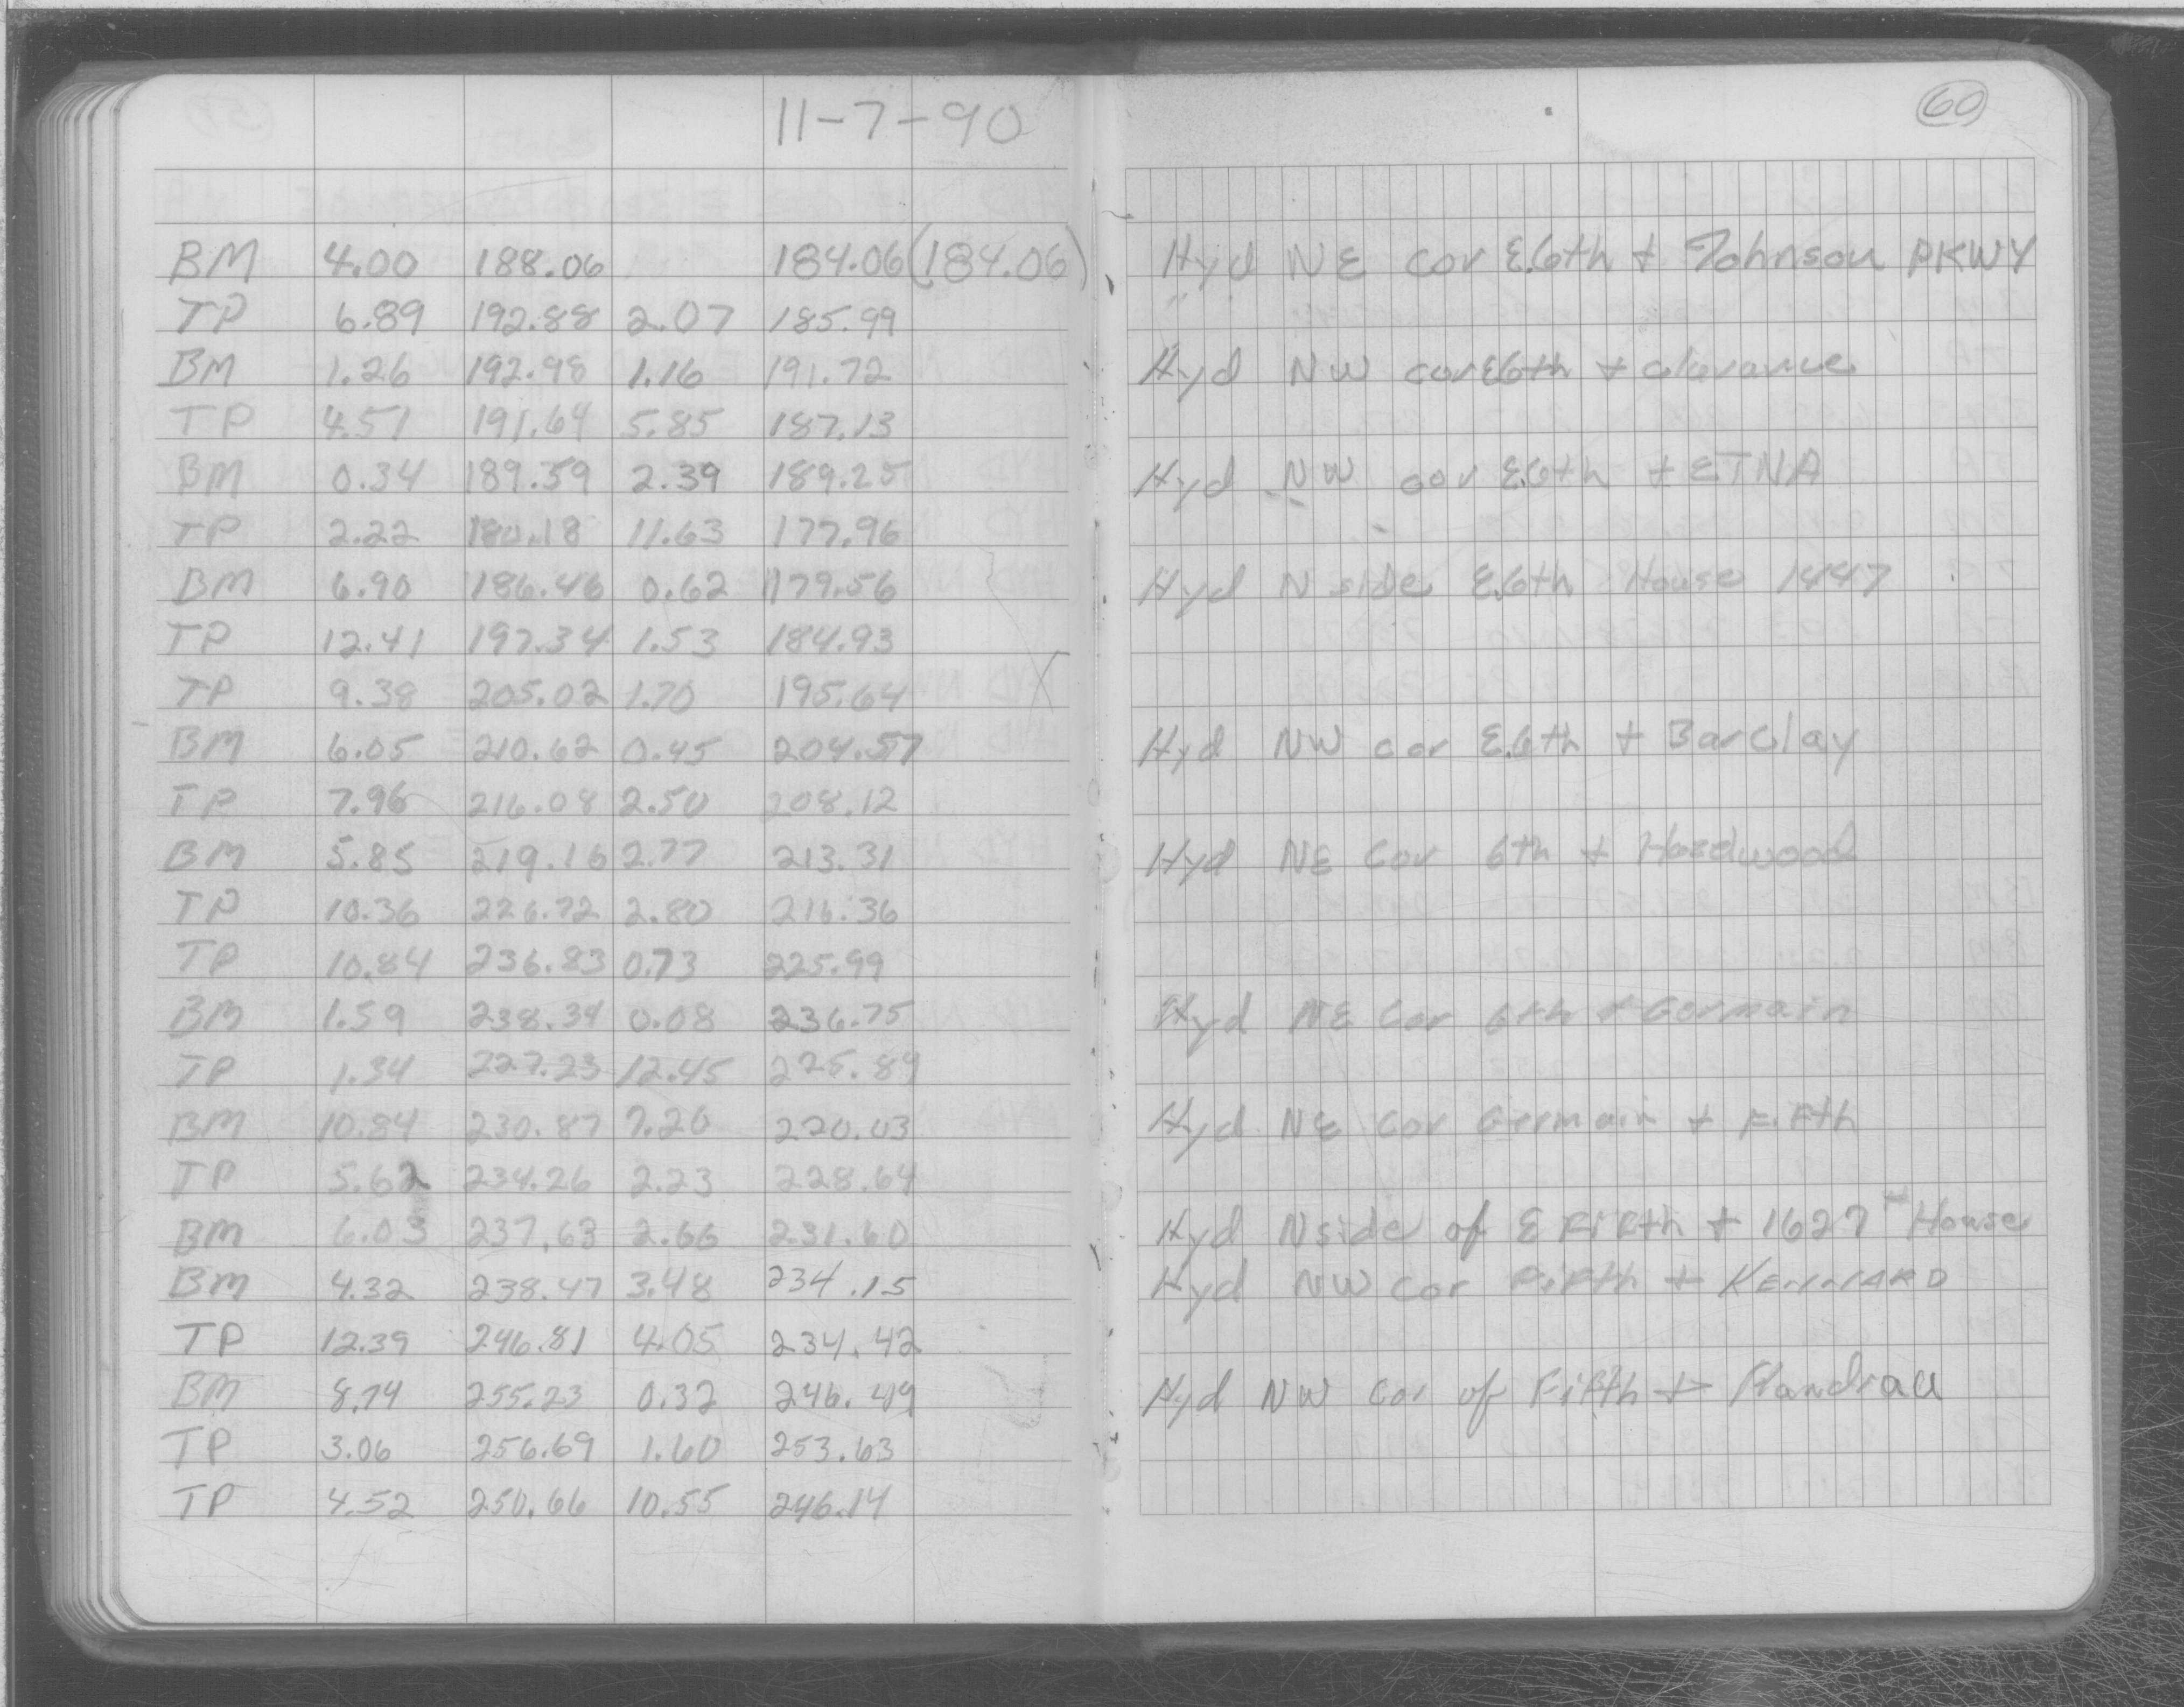 11-7-90
60
BM 4.00 188.06 184.06 (184.06) Hyd NE cor E.6th + Johnson PKWY
TP 6.89 192.88 2.07 185.99
BM 1.26 192.98 1.16 191.72 Hyd NW cor E6th + Clarance
TP 4.51 191.64 5.85 187.13
BM 0.34 189.59 2.39 189.25 Hyd NW cor E.6th + ETNA
TP 2.22 180.18 11.63 177.96
BM 6.90 186.46 0.62 179.56 Hyd N side E.6th House 1447
TP 12.41 197.34 1.53 184.93
TP 9.38 205.02 1.70 195.64
BM 6.05 210.62 0.45 204.57 Hyd NW cor E.6th + Barclay
TP 7.96 216.08 2.50 208.12
BM 5.85 219.16 2.77 213.31 Hyd NE Cor 6th +
TP 10.36 226.72 2.80 216.36
TP 10.84 236.83 0.73 225.99
BM 1.59 238.34 0.08 236.75 Hyd NE Cor 6th + Germain
TP 1.34 227.23 12.45 225.89
BM 10.84 230.87 7.20 220.03 Hyd NE Cor Germain + Fifth
TP 5.62 234.26 2.23 228.64
BM 6.03 237.63 2.66 231.60 Hyd N side of E Fifth + 1627 House
BM 4.32 238.47 3.48 234.15 Hyd NW Cor Fifth + KENNARD
TP 12.39 246.81 4.05 234.42
BM 8.74 255.23 0.32 246.49 Hyd NW Cor of Fifth +
TP 3.06 256.69 1.60 253.63
TP 4.52 250.66 10.55 246.14